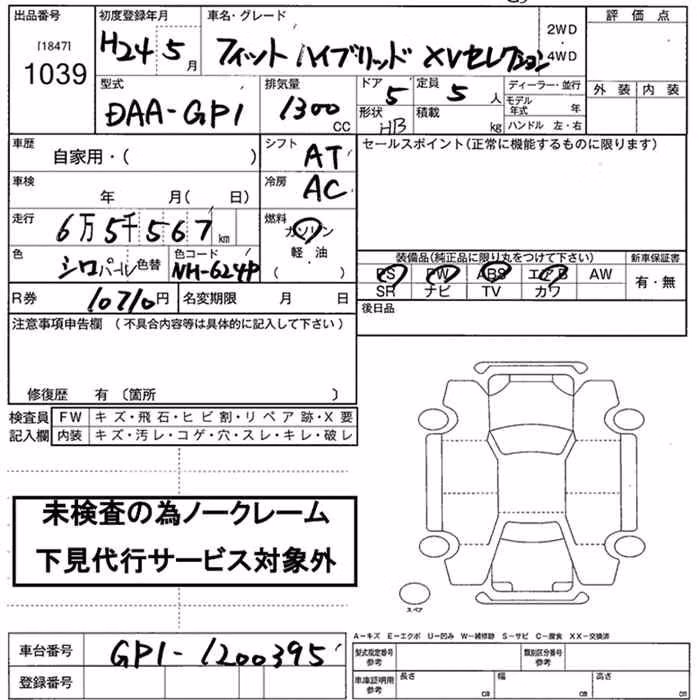 出品番号 初度登録年月 車名・グレード 評価点
[1847] 1039 H24 5月 フィットハイブリッド XVセレクション 2WD・4WD
型式 排気量 ドア 定員 ディーラー・並行 外装 内装
DAA-GP1 1300cc 5 5人 モデル年式 年
形状 HB 積載 kg ハンドル 左・右
車歴 自家用・( ) シフト AT セールスポイント(正常に機能するものに限ります)
車検 年 月( 日) 冷房 AC
走行 6万5千567km 燃料 ガソリン 軽・油 ( )
色 シロパール 色替 色コード NH-624P 装備品(純正品に限り丸をつけて下さい) 新車保証書
PS PW ABS エアB AW 有・無
SR ナビ TV カワ
R券 10710円 名変期限 月 日 後日品
注意事項申告欄 (不具合内容等は具体的に記入して下さい)
修復歴 有 〔箇所 〕
検査員 FW キズ・飛石・ヒビ割・リペア跡・X要
記入欄 内装 キズ・汚レ・コゲ・穴・スレ・キレ・破レ
未検査の為ノークレーム
下見代行サービス対象外
スペア
A-キズ E-エクボ U-凹み W-補修跡 S-サビ C-腐食 XX-交換済
車台番号 GP1-1200395 型式指定番号 参考 類別区分番号 参考
登録番号 車庫証明用 参考 長さ cm 幅 cm 高さ cm